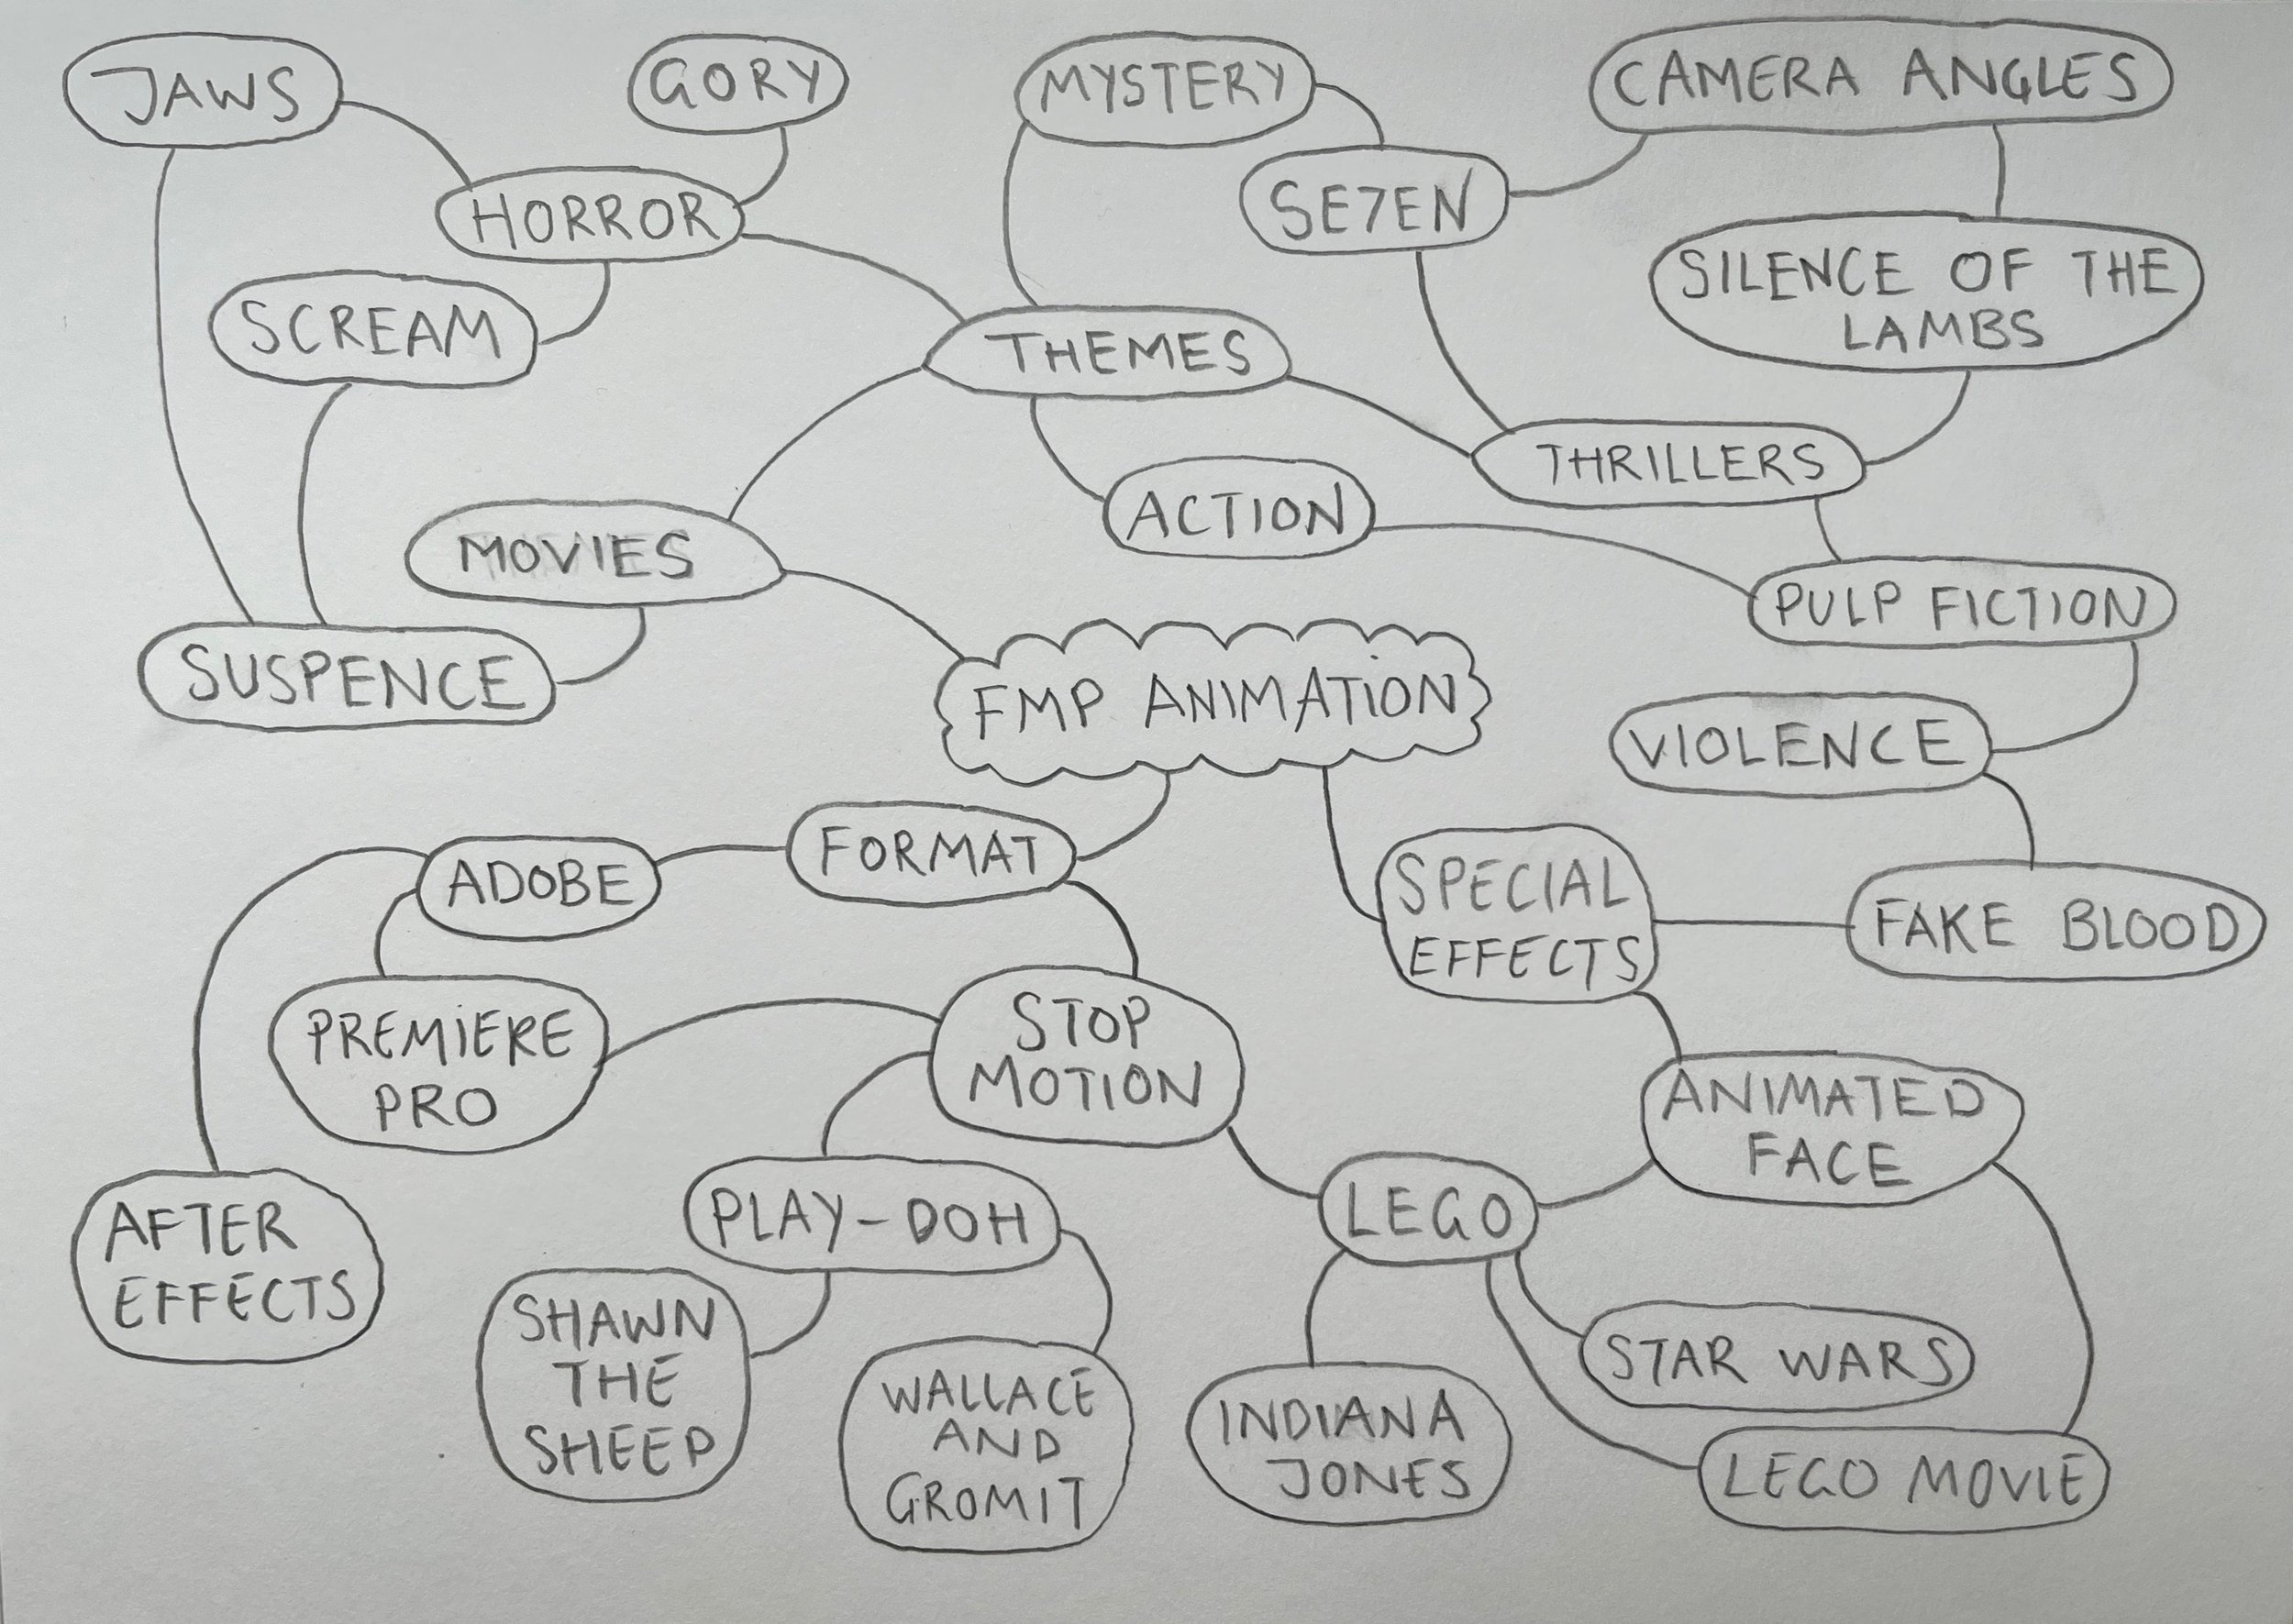 JAWS
GORY
MYSTERY
CAMERA ANGLES
HORROR
SE7EN
SILENCE OF THE
LAMBS
SCREAM
THEMES
THRILLERS
ACTION
MOVIES
PULP FICTION
SUSPENCE
FMP ANIMATION
VIOLENCE
FORMAT
ADOBE
SPECIAL
EFFECTS
FAKE BLOOD
PREMIERE
PRO
STOP
MOTION
ANIMATED
FACE
AFTER
EFFECTS
PLAY-DOH
LEGO
SHAWN
THE
SHEEP
WALLACE
AND
GROMIT
INDIANA
JONES
STAR WARS
LEGO MOVIE